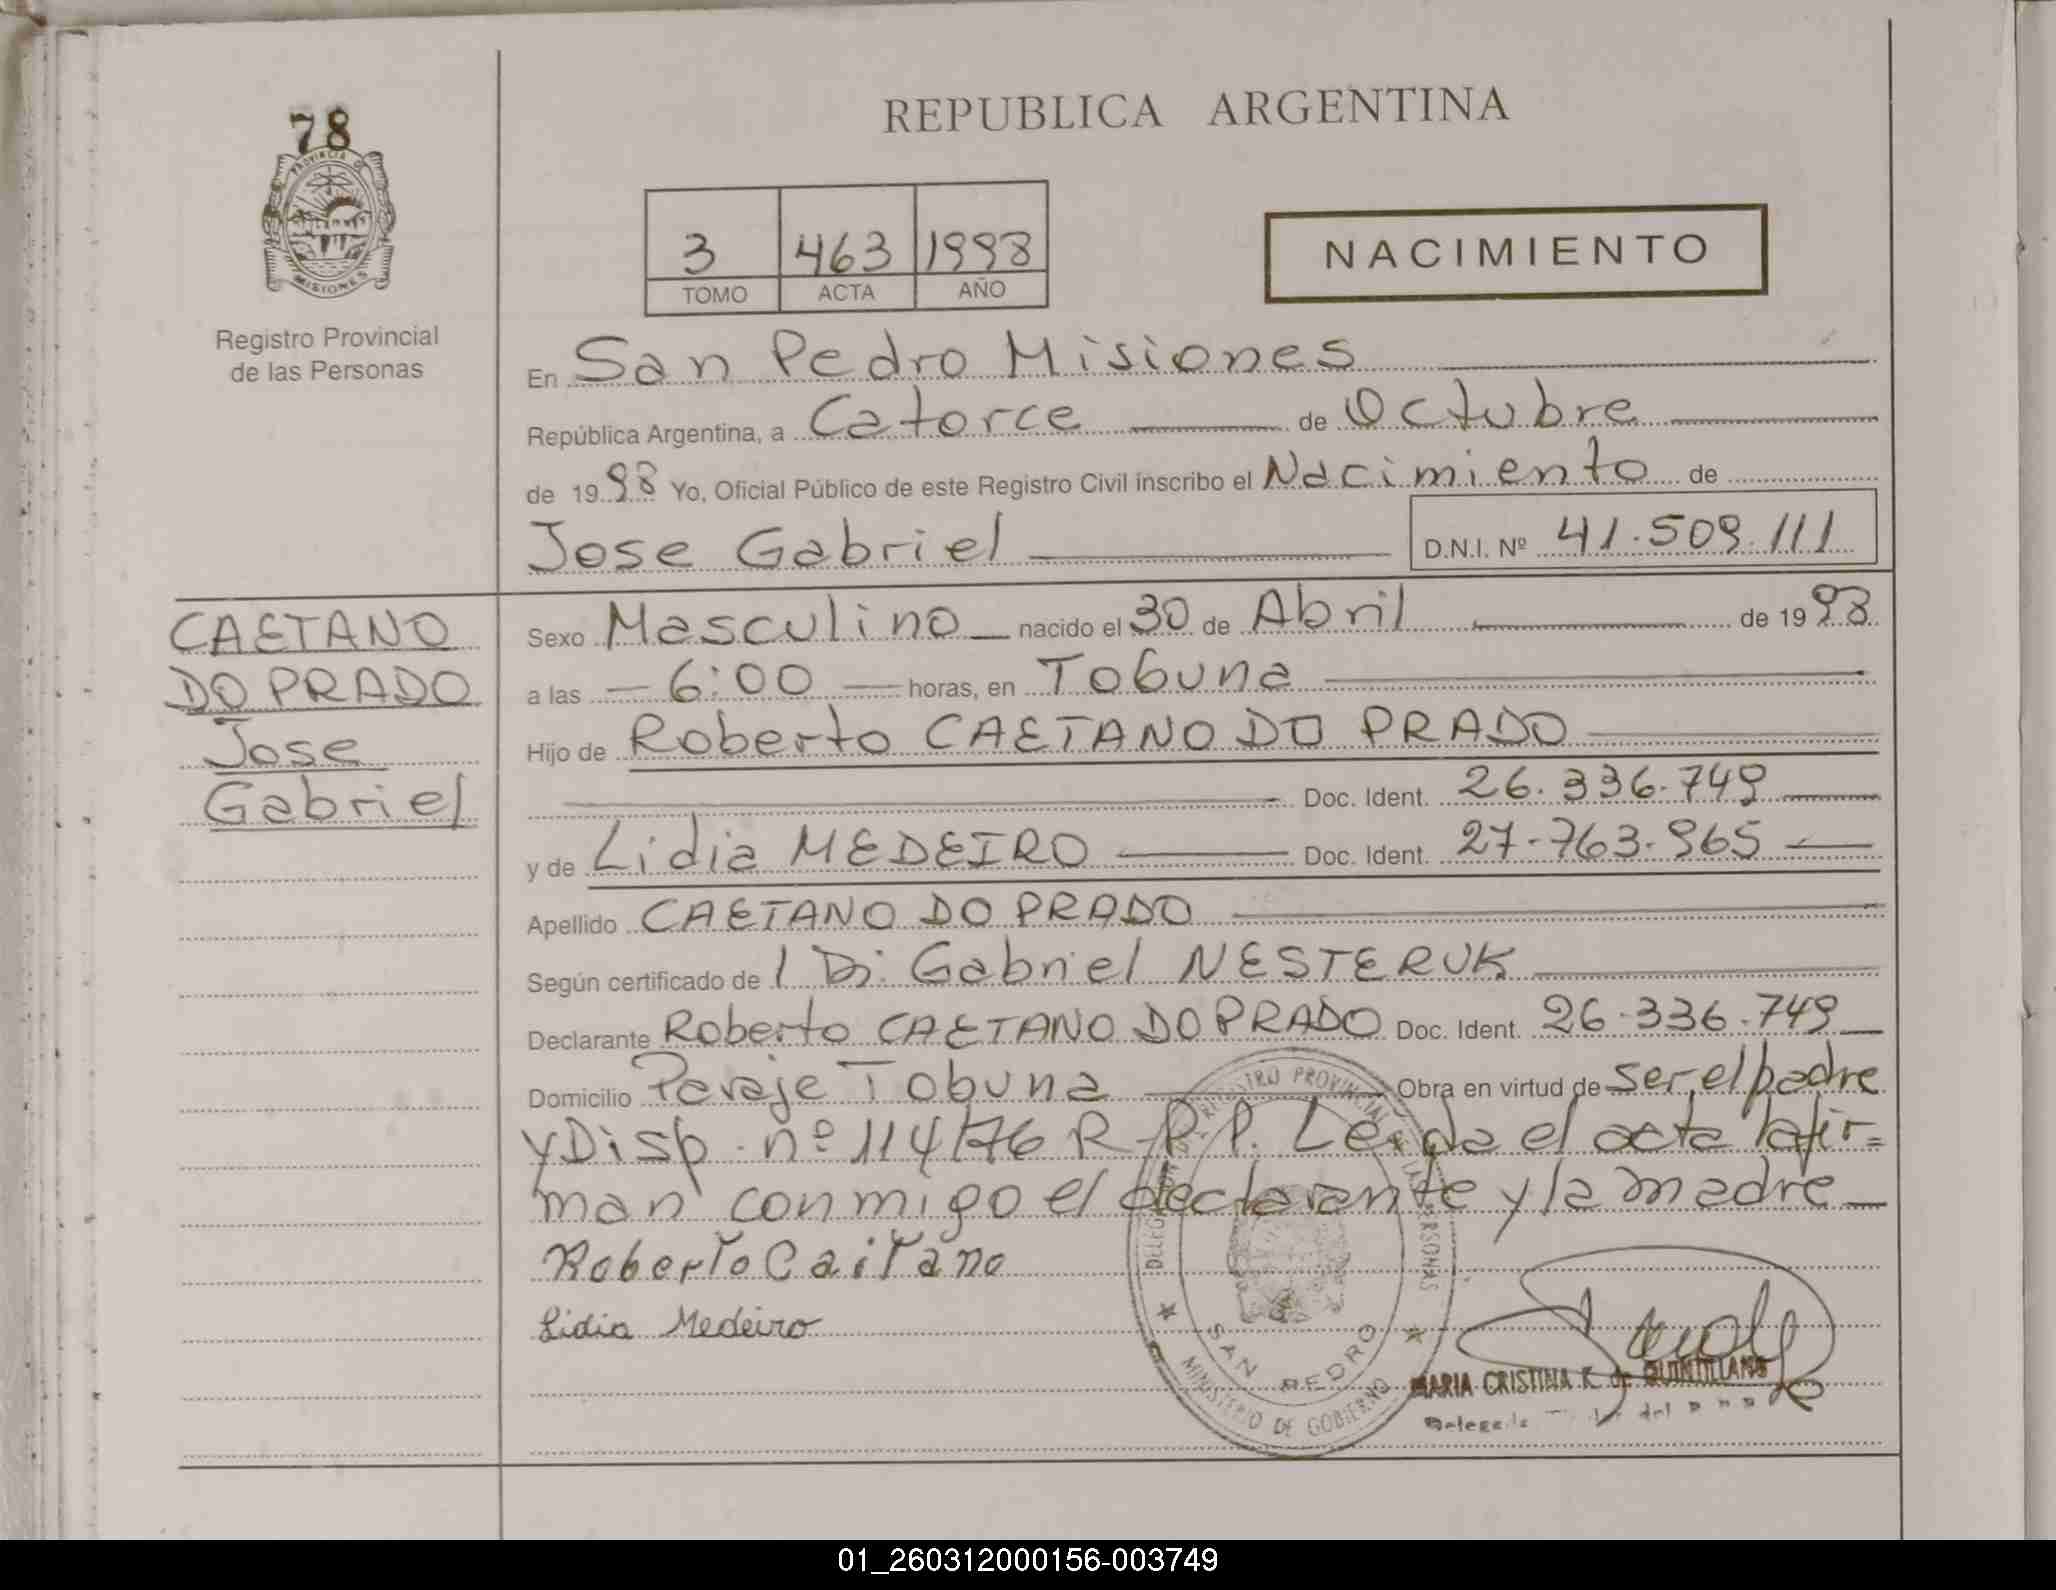 78
PROVINCIA DE
MISIONES
Registro Provincial
de las Personas
REPUBLICA ARGENTINA
3 463 1998
TOMO ACTA AÑO
NACIMIENTO
En San Pedro Misiones
República Argentina, a Catorce de Octubre
de 1998 Yo, Oficial Público de este Registro Civil inscribo el Nacimiento de
Jose Gabriel D.N.I. Nº 41.509.111
CAETANO
DO PRADO
Jose
Gabriel
Sexo Masculino nacido el 30 de Abril de 1998
a las 6:00 horas, en Tobuna
Hijo de Roberto CAETANO DO PRADO
Doc. Ident. 26.336.749
y de Lidia MEDEIRO Doc. Ident. 27-763-965
Apellido CAETANO DO PRADO
Según certificado de / Dr. Gabriel NESTERUK
Declarante Roberto CAETANO DO PRADO Doc. Ident. 26-336.749
Domicilio Paraje Tobuna Obra en virtud de ser el padre
y Disp. nº 114/76 R.P.P. Leida el acta la fir=
man conmigo el declarante y la madre
Roberto Caitano
Lidia Medeiro
REGISTRO PROVINCIAL DE LAS PERSONAS
SAN PEDRO
MINISTERIO DE GOBIERNO
MARIA CRISTINA K. de QUINTILLANO
01_260312000156-003749